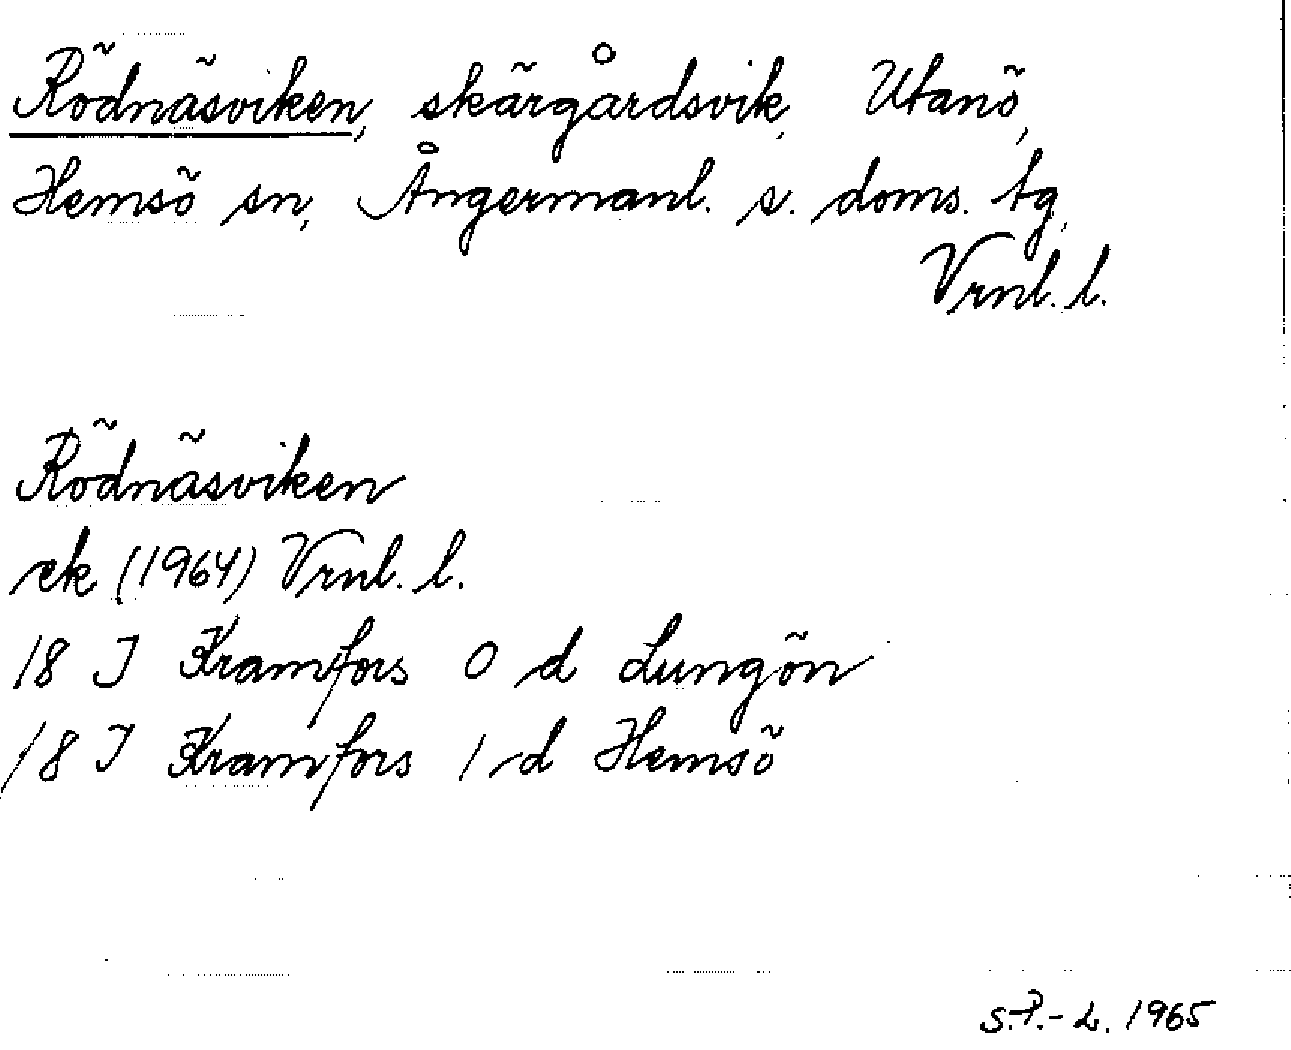 Rödnäsviken, skärgårdsvik, Utanö,
Hemsö sn, Ångermanl. s. doms. tg,
Vrnl. l.
Rödnäsviken
ek (1964) Vrnl. l.
18 I Kramfors 0 d Lungön
18 I Kramfors 1 d Hemsö
S.P.-L. 1965